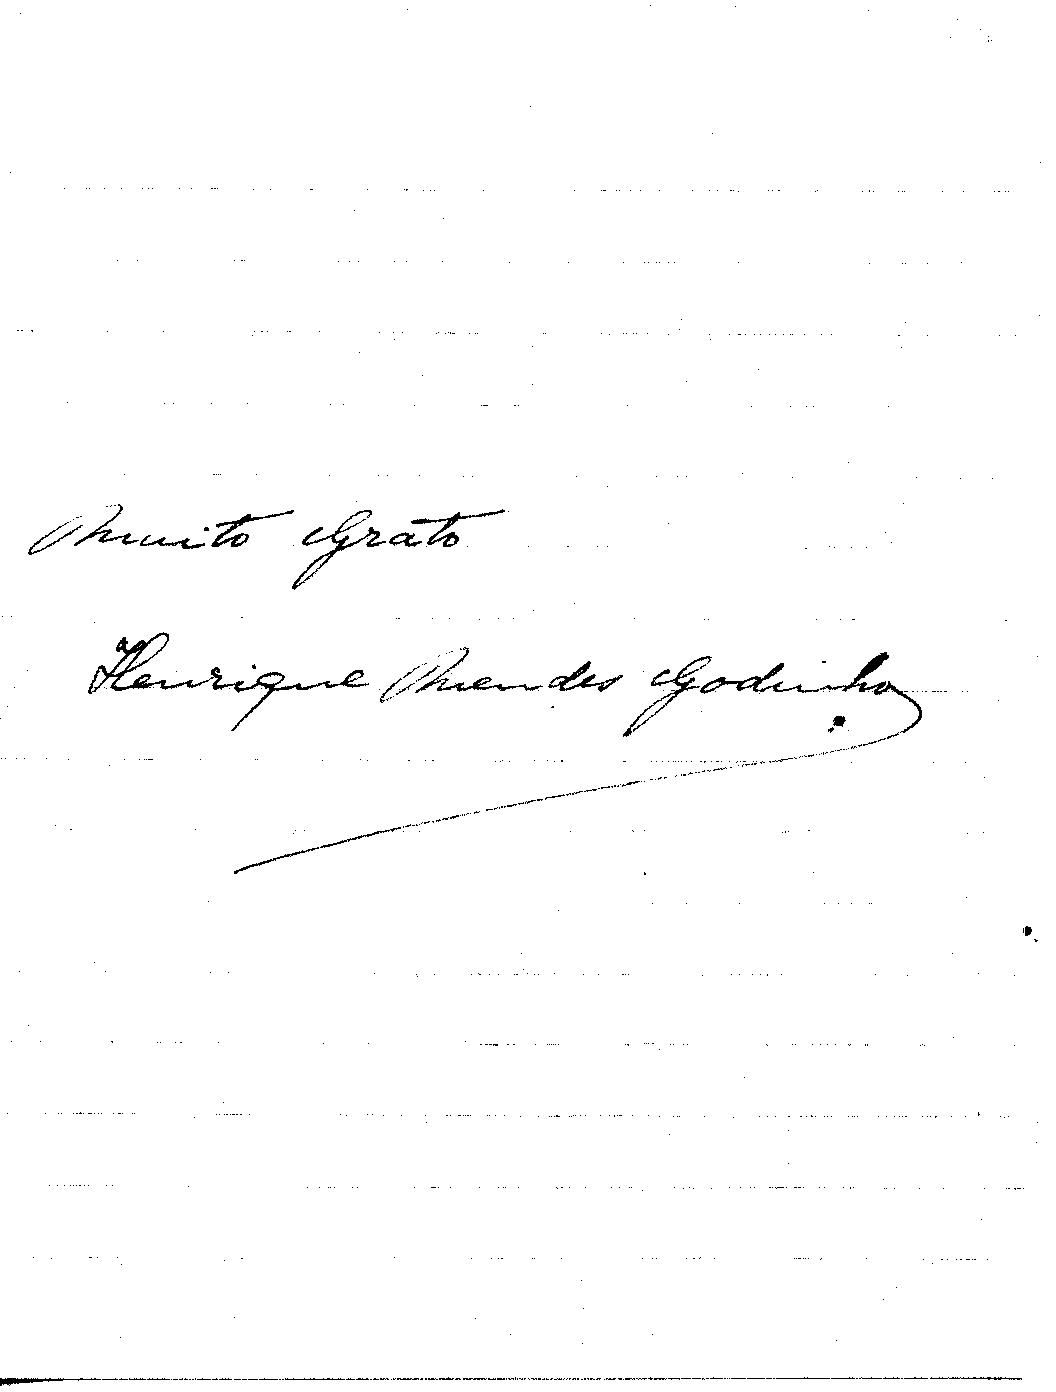 Muito Grato
Henrique Mendes Godinho